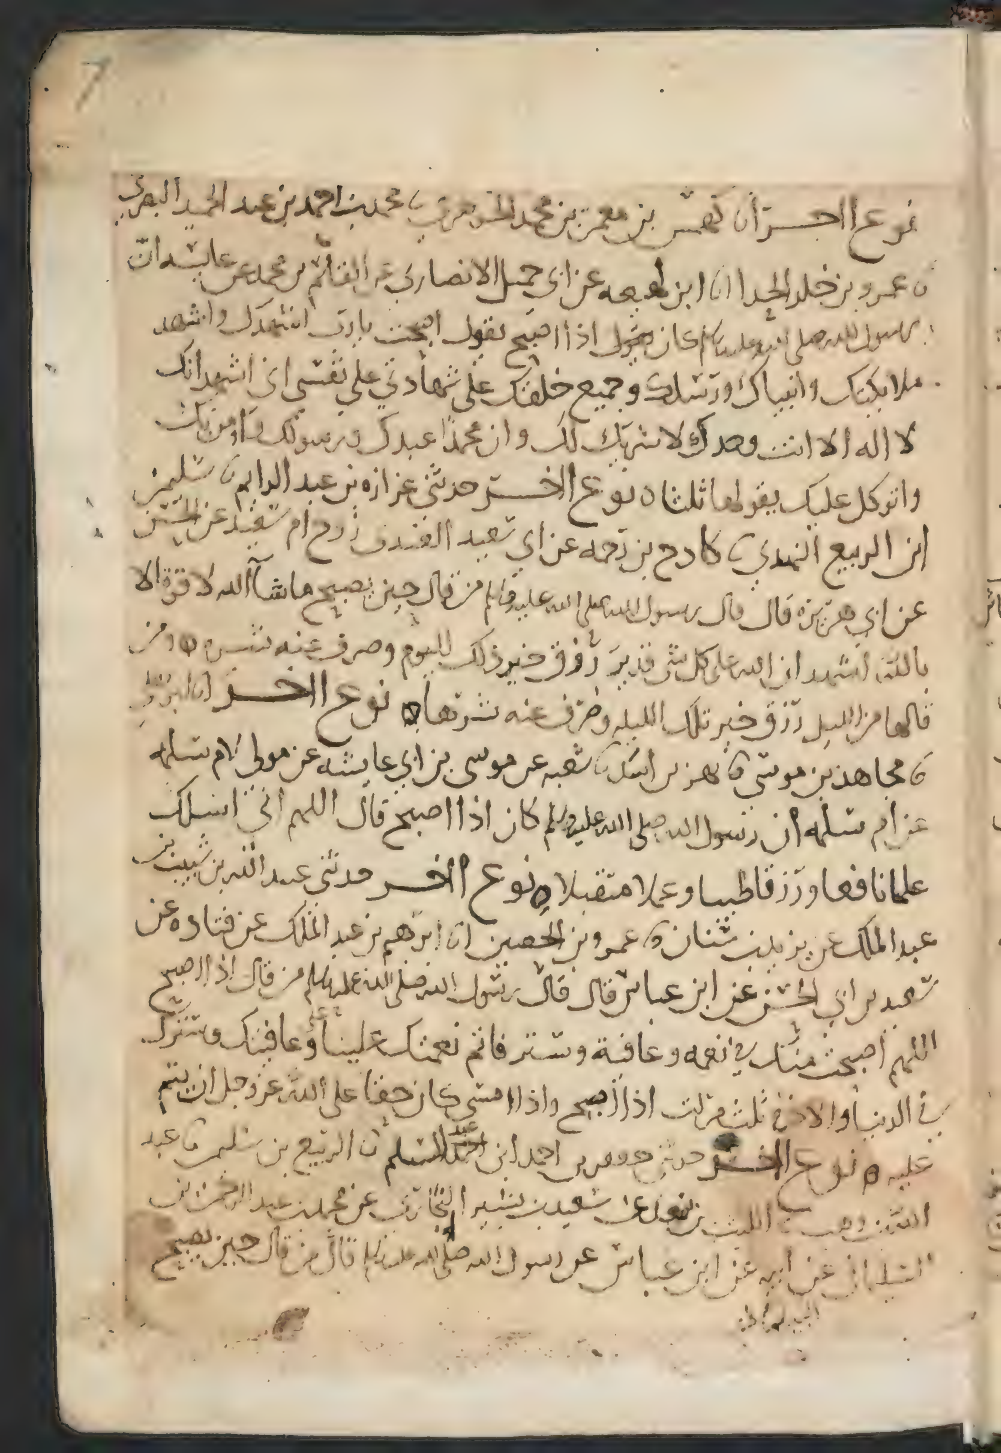 7
نوع اخر انا كهمس بن معمر بن محمد الجوهري ثنا محمد بن احمد بن عبد الحميد البهراني
ثنا عمرو بن خلد الحرا انا ابن لهيعه عن ابي جميل الانصاري عن القاسم بن محمد عن عايشه ان
رسول الله صلى الله عليه وسلم كان يقول اذا اصبح يقول اصبحت يا رب اشهدك واشهد
ملايكتك وانبياك ورسلك وجميع خلقك على شهادتي على نفسي اني اشهد انك
لا اله الا انت وحدك لا شريك لك وان محمدا عبدك ورسولك واومن بك
واتوكل عليك يقولها ثلثا ه نوع اخر حدثني عزازه بن عبد الدايم ثنا سليمن
ابن الربيع النهدي ثنا كادح بن رحمه عن ابي سعيد العبدي زوج ام سعيد عن الحسن
عن ابي هريره قال قال رسول الله صلى الله عليه وسلم من قال حين يصبح ما شا الله لا قوة الا
بالله اشهد ان الله على كل شي قدير رزق خير ذلك اليوم وصرف عنه شره ومن
قالها من الليل رزق خير تلك الليله وصرف عنه شرها ه نوع اخر انا
ثنا مجاهد بن موسى ثنا بهز بن اسد ثنا شعبه عن موسى بن ابي عايشه عن مولى لام سلمه
عن ام سلمه ان رسول الله صلى الله عليه وسلم كان اذا اصبح قال اللهم اني اسلك
علما نافعا ورزقا طيبا وعملا متقبلا ه نوع اخر حدثني عبد الله بن شبيب بن
عبد الملك عن يزيد بن سنان ثنا عمرو بن الحصين انا ابرهيم بن عبد الملك عن قتاده عن
سعيد بن ابي الحسن عن ابن عباس قال قال رسول الله صلى الله عليه وسلم من قال اذا اصبح
اللهم اصبحت منك في نعمه وعافية وستر فاتم نعمتك علينا وعافيتك وسترك
في الدنيا والاخرة ثلث مرات اذا اصبح واذا امسى كان حقا على الله عز وجل ان يتم
عليه ه نوع اخر حدثني جعفر بن احمد ابن عبد السلم ثنا الربيع بن سليمن ثنا عبد
الله بن وهب ثنا الليث بن سعد عن سعيد بن بشير النجاري عن محمد بن عبد الرحمن بن
البيلماني عن ابيه عن ابن عباس عن رسول الله صلى الله عليه وسلم قال من قال حين يصبح
البيلماني